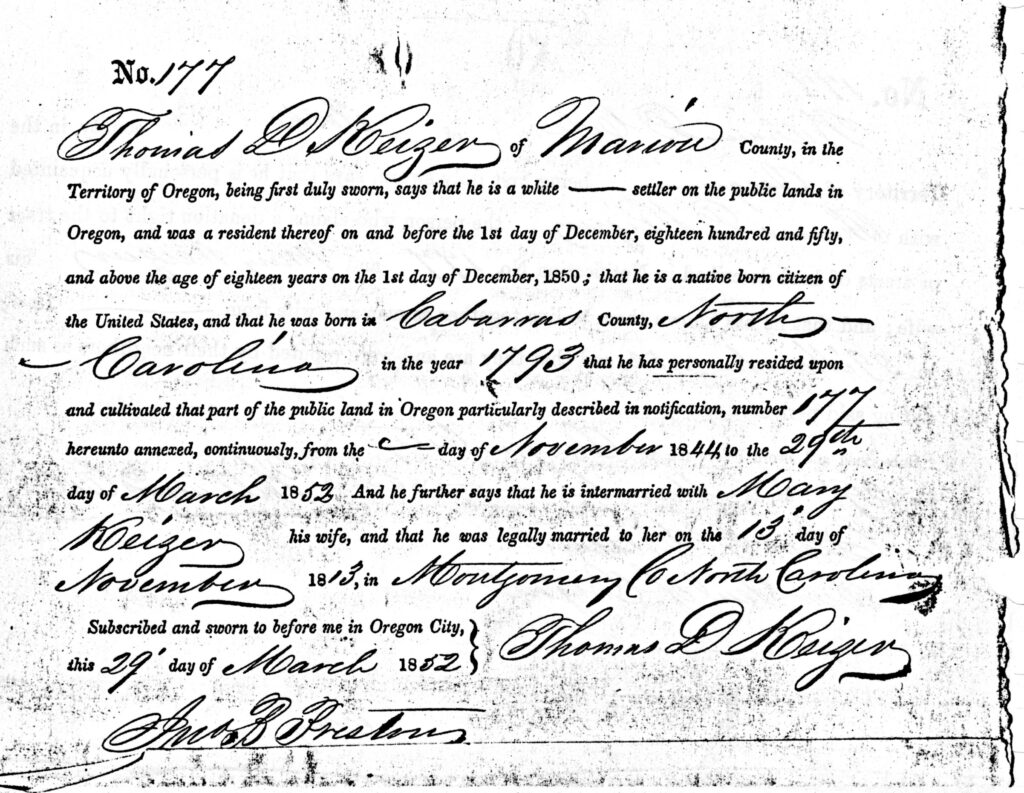 No. 177
Thomas D Keizer of Marion County, in the
Territory of Oregon, being first duly sworn, says that he is a white —— settler on the public lands in
Oregon, and was a resident thereof on and before the 1st day of December, eighteen hundred and fifty,
and above the age of eighteen years on the 1st day of December, 1850; that he is a native born citizen of
the United States, and that he was born in Cabarras County, North —
— Carolina in the year 1793 that he has personally resided upon
and cultivated that part of the public land in Oregon particularly described in notification, number 177
hereunto annexed, continuously, from the — day of November 1844 to the 29th
day of March 1852 And he further says that he is intermarried with Mary
Keizer his wife, and that he was legally married to her on the 13 day of
November 1813, in Montgomery Co North Carolina
Subscribed and sworn to before me in Oregon City,
this 29 day of March 1852
Thomas D Keizer
Jno. B Preston